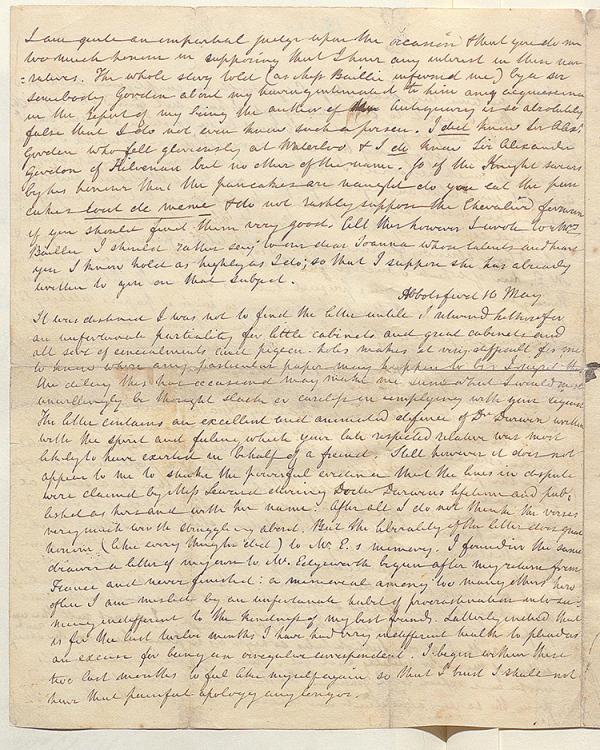 I am quite an impartial judge upon the occasion & that you do me
too much honour in supposing that I have any interest in these nar-
=ratives. The whole story told (as Miss Baillie informed me) by a Sir
somebody Gordon about my having intimated to him any acquiescence
in the report of my being the author of the Antiquary is so absolutely
false that I do not even know such a person. I did know Sir Alexr
Gordon who fell gloriously at Waterloo & I do know Sir Alexander
Gordon of Culvenan but no other of the name. So if the Knight swears
by his honour that the pancakes are naught do you eat the pan
cakes tout de meme & do not rashly suppose the Chevalier forsworn
if you should find them very good. All this however I wrote to Mrs
Baillie I should rather say to our dear Joanna whose talents and heart
you I know hold as highly as I do; so that I suppose she has already
written to you on that subject.
Abbotsford 10 May
It was destined I was not to find the letter untile I returnd hither for
an unfortunate partiality for little cabinets and great cabinets and
all sort of concealments and pigeon-holes makes it very difficult for me
to know where any particular paper may happen to be. I regret the
the delay this has occasioned may make me since what I would most
unwillingly be thought slack or careless in complying with your request
The letter contains an excellent and animated defence of Dr Darwin written
with the spirit and feeling which your late respected relative was most
likely to have exerted in behalf of a friend. Still however it does not
appear to me to shake the powerful evidence that the lines in dispute
were claimed by Miss Seward during Doctor Darwins lifetime and pub-
lished as hers and with her name. After all I do not think the verses
very much worth struggling about. But the liberality of the letter does great
honour (like every thing he did) to Mr E.s memory. I found in the same
drawer a letter of my own to Mr. Edgeworth begun after my return from
France and never finished: a memorial among too many others how
often I am misled by an unfortunate habit of procrastination into see-
ming indifferent to the kindness of my best friends. Latterly indeed that
is for the last twelve months I have had very indifferent health to plead as
an excuse for being an irregular correspondent. I begin within these
two last months to feel like myself again so that I trust I shall not
have that painful apology any longer.